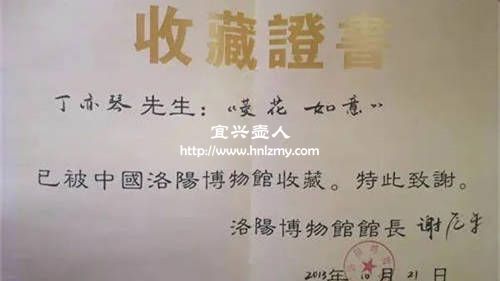 收藏證書
丁亦琴先生：“菱花如意”
宜兴壶人
http://www.hnlzmy.com
已被中國洛陽博物館收藏。特此致謝。
洛陽博物館館長 谢虎军
2013年10月21日